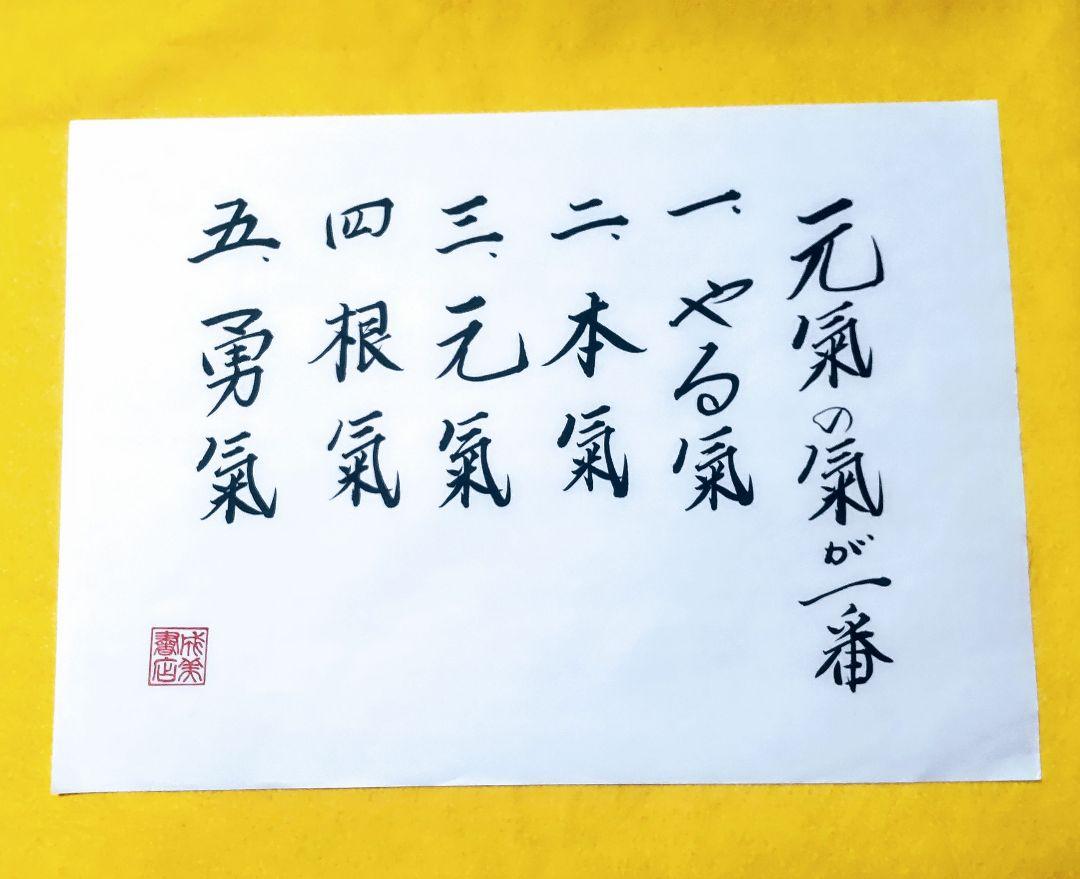 元氣の氣が一番
一、やる氣
二、本氣
三、元氣
四根氣
五、勇氣
成美
書店